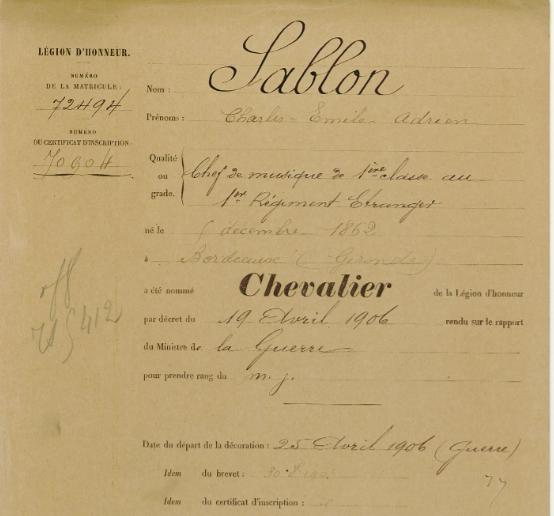 LÉGION D'HONNEUR.
NUMÉRO
DE LA MATRICULE:
72494
NUMÉRO
DU CERTIFICAT D'INSCRIPTION:
70904
Nom: Sablon
Prénoms: Charles-Emile Adrien
Qualité ou grade. Chef de musique de 1ère classe au
1er Régiment Etranger
né le 5 décembre 1862
à Bordeaux (Gironde)
a été nommé Chevalier de la Légion d'honneur
par décret du 19 Avril 1906 rendu sur le rapport
du Ministre de la Guerre
pour prendre rang du m. j.
off
412
Date du départ de la décoration: 25 Avril 1906 (Guerre)
Idem du brevet:
Idem du certificat d'inscription: